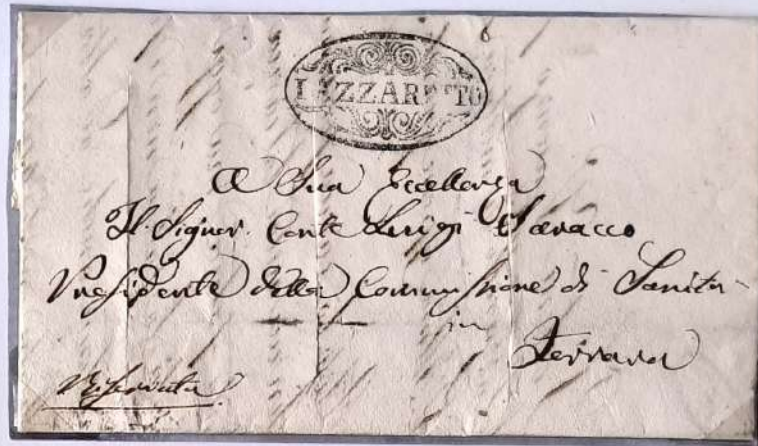 LAZZARETTO
A Sua Eccellenza
Il Signor Conte Luigi Saracco
Presidente della Commissione di Sanità
in
Ferrara
Riservata